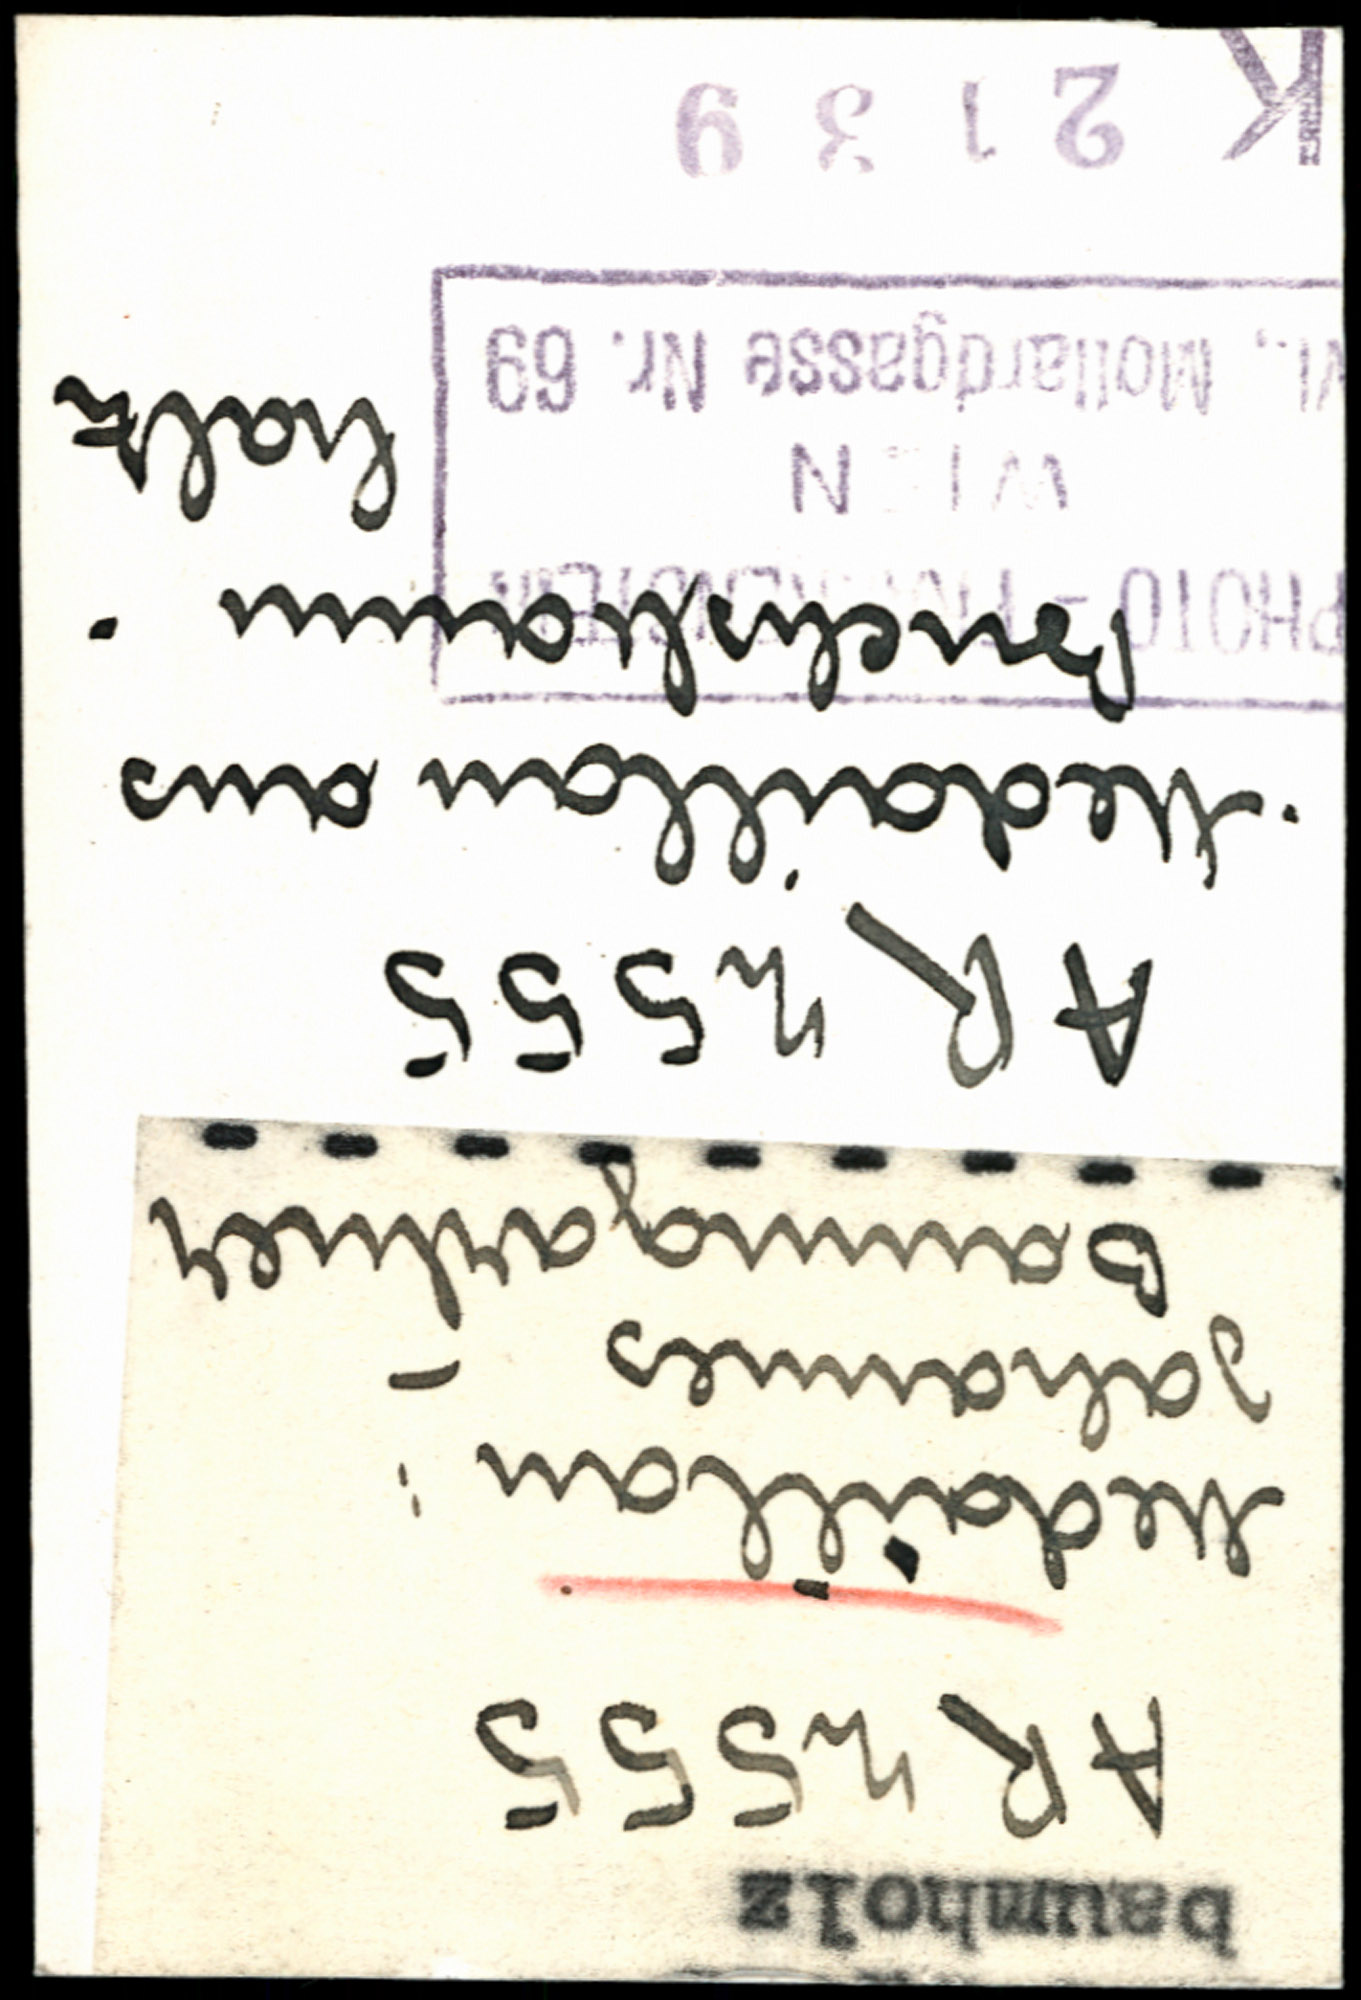 baumholz
AR 4555
Medaillon :
Johannes -
Baumgartner
AR 4555
Medaillon aus
Buchsbaum -
holz
PHOTO-FRANKENSTEIN
WIEN
VI., Mollardgasse Nr. 69
K 2139